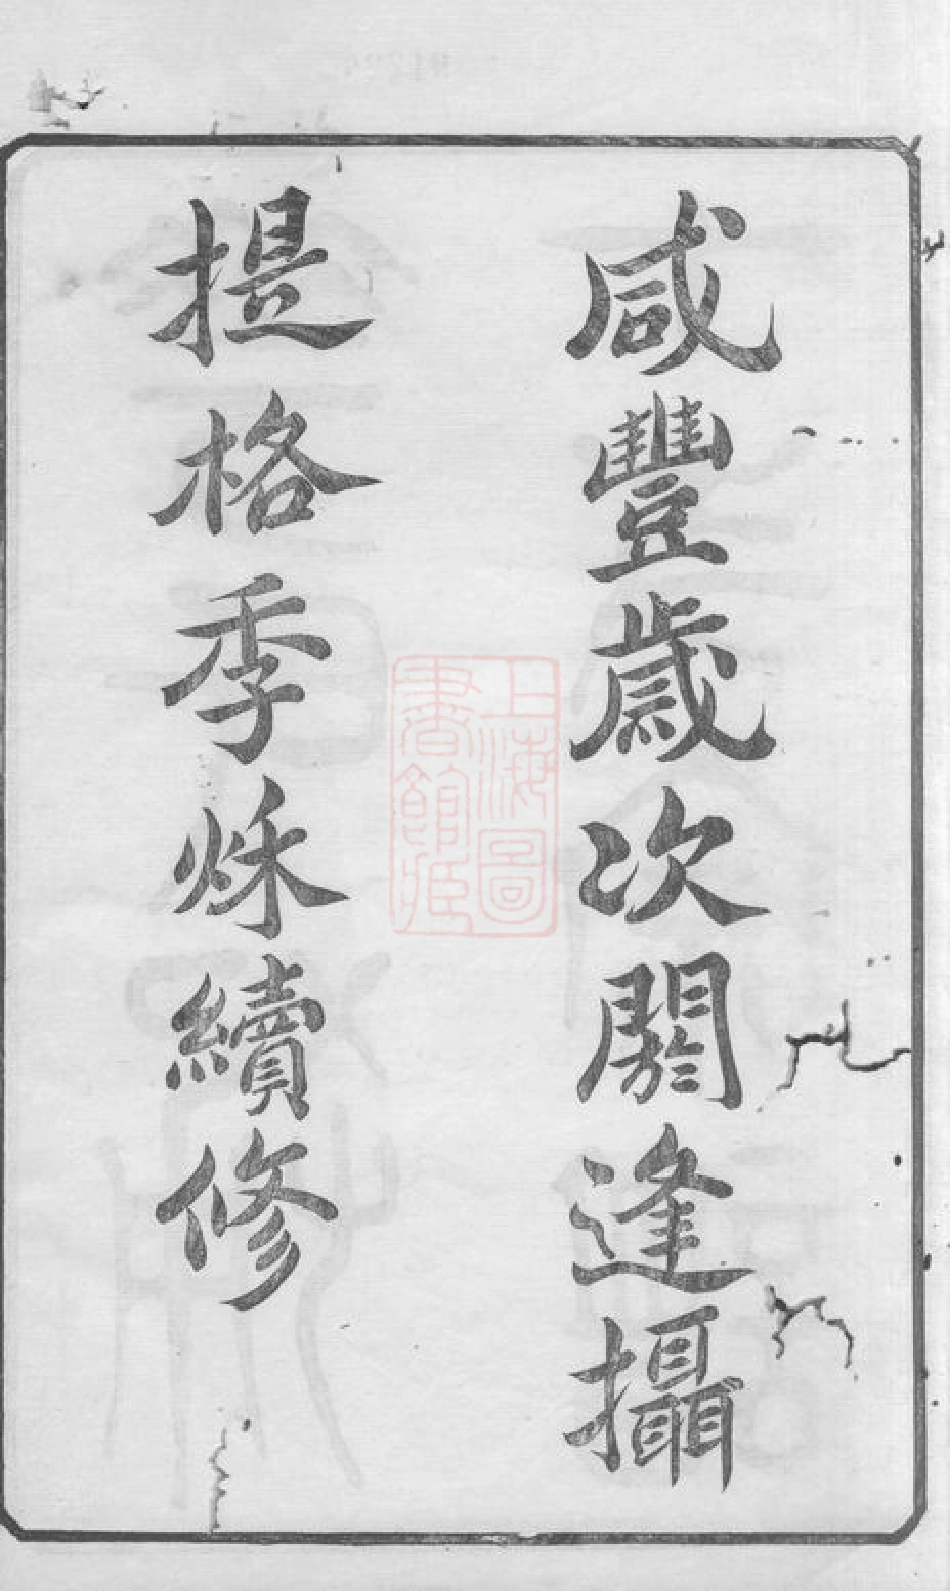 咸豐歲次閼逢攝
提格季秌續修
上海圖
書館藏